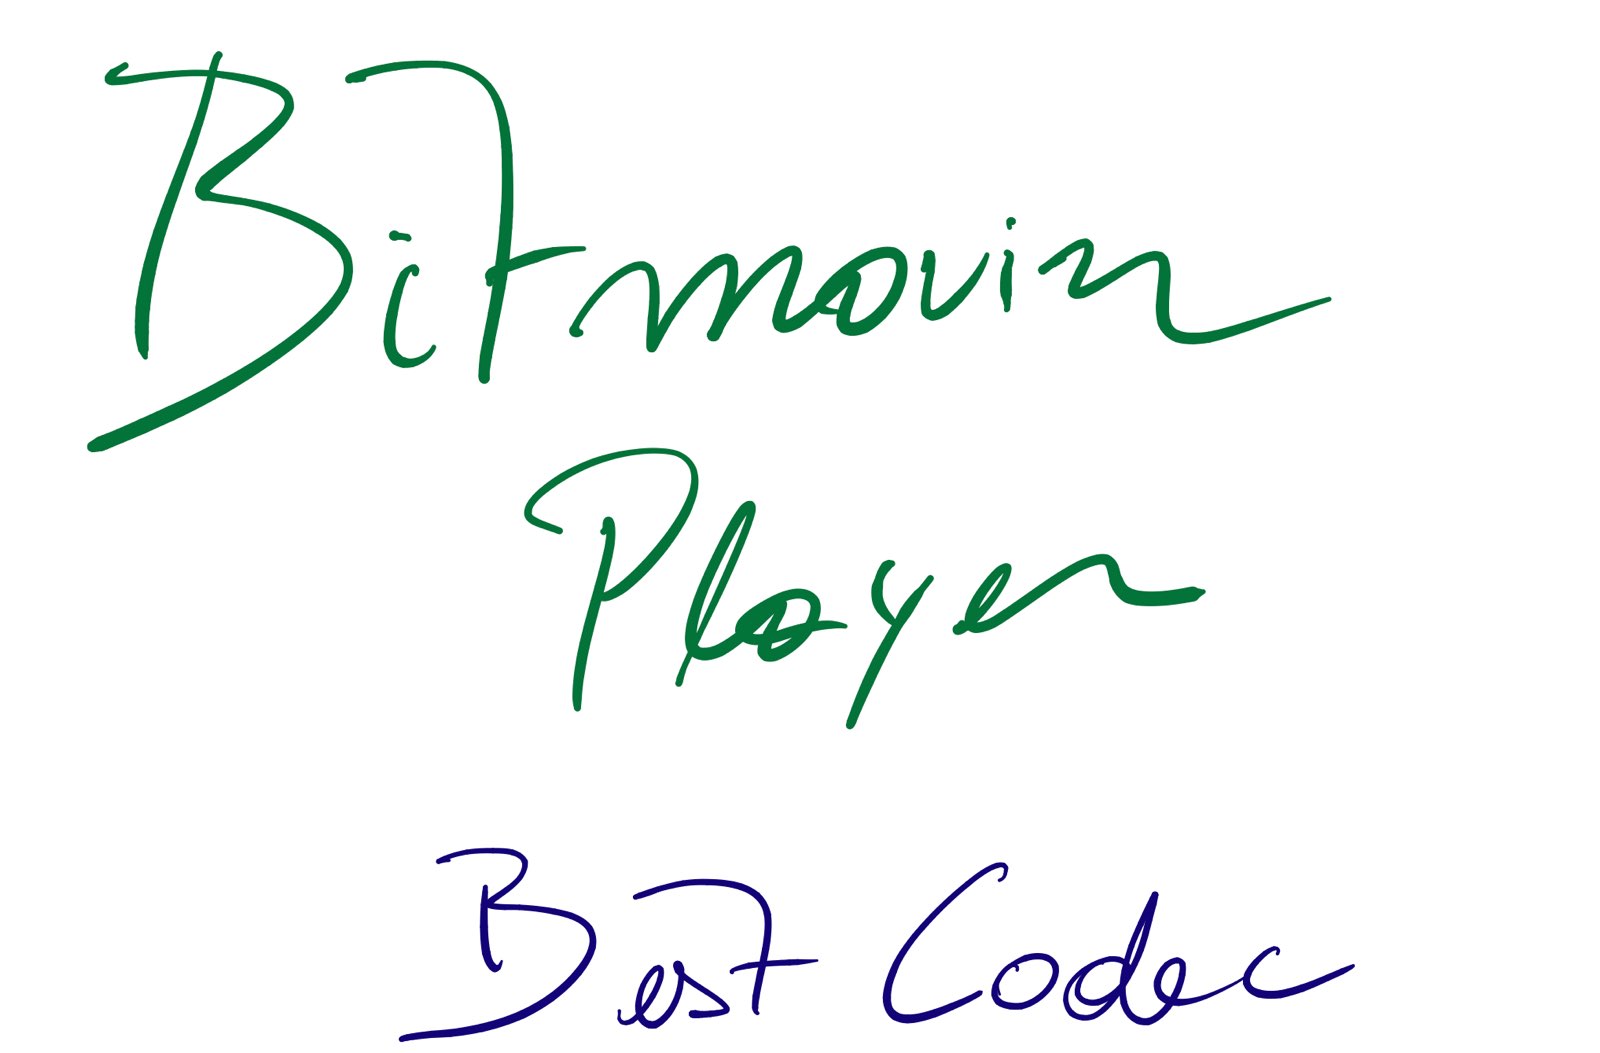 Bitmovin
Player
Best Codec